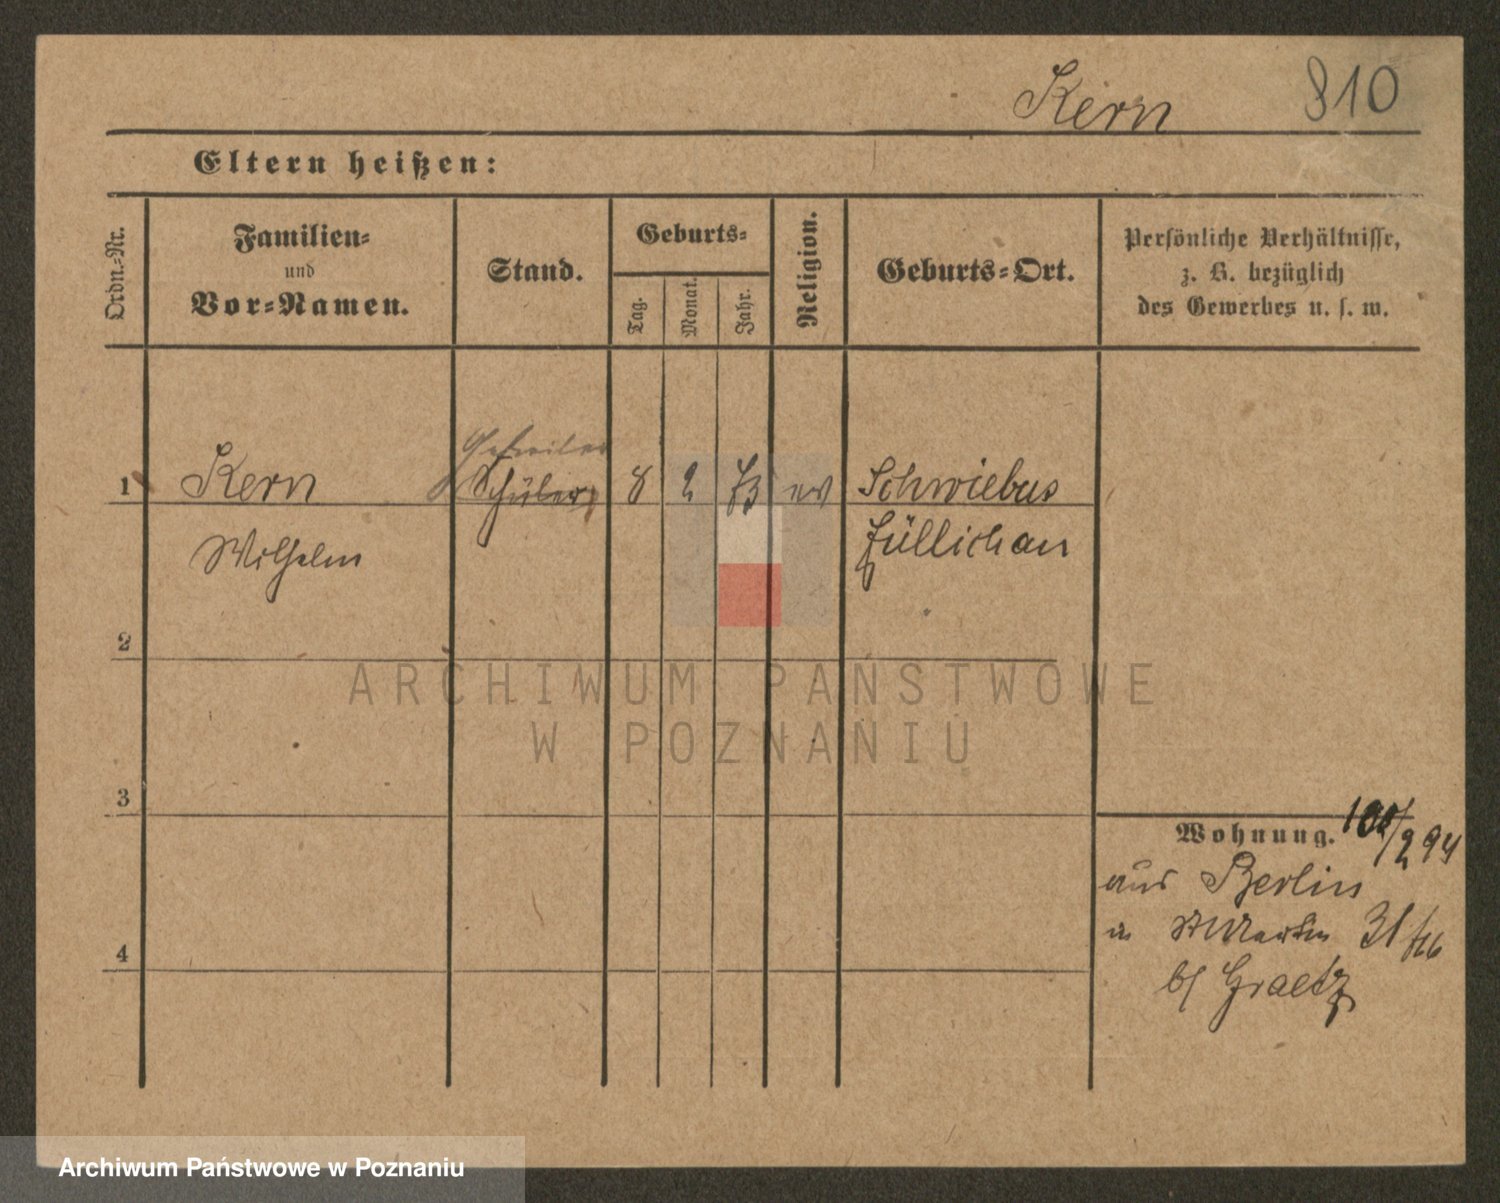 Kern 810
Eltern heißen:
Ordn.-Nr.
Familien-
und
Vor-Namen.
Stand.
Geburts-
Tag.
Monat.
Jahr.
Religion.
Geburts-Ort.
Persönliche Verhältnisse,
z. B. bezüglich
des Gewerbes u. s. w.
1 Kern Schüler 8 2 73 ev Schwiebus
Wilhelm Züllichau
2
3
4
Wohnung. /2 94
aus Berlin
in St Martin 31
b/ Graetz
ARCHIWUM PAŃSTWOWE
W POZNANIU
Archiwum Państwowe w Poznaniu